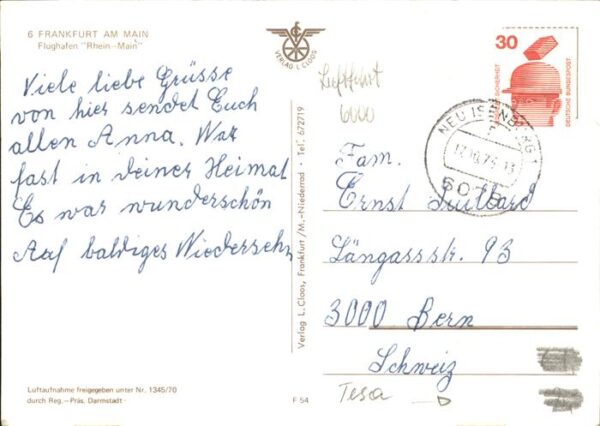 6 FRANKFURT AM MAIN
Flughafen "Rhein-Main"
VERLAG L. CLOOS
Viele liebe Grüsse
von hier sendet Euch
allen Anna. War
fast in deiner Heimat
Es war wunderschön
Auf baldiges Wiedersehn
Luftaufnahme freigegeben unter Nr. 1345/70
durch Reg.-Präs. Darmstadt
Verlag L. Cloos, Frankfurt/M.-Niederrad - Tel. 672719
F 54
Luftfurt
6000
30
SICHERHEIT
DEUTSCHE BUNDESPOST
NEU ISENBURG 1
6078
Fam.
Ernst
Längassstr. 93
3000 Bern
Schweiz
Tesa